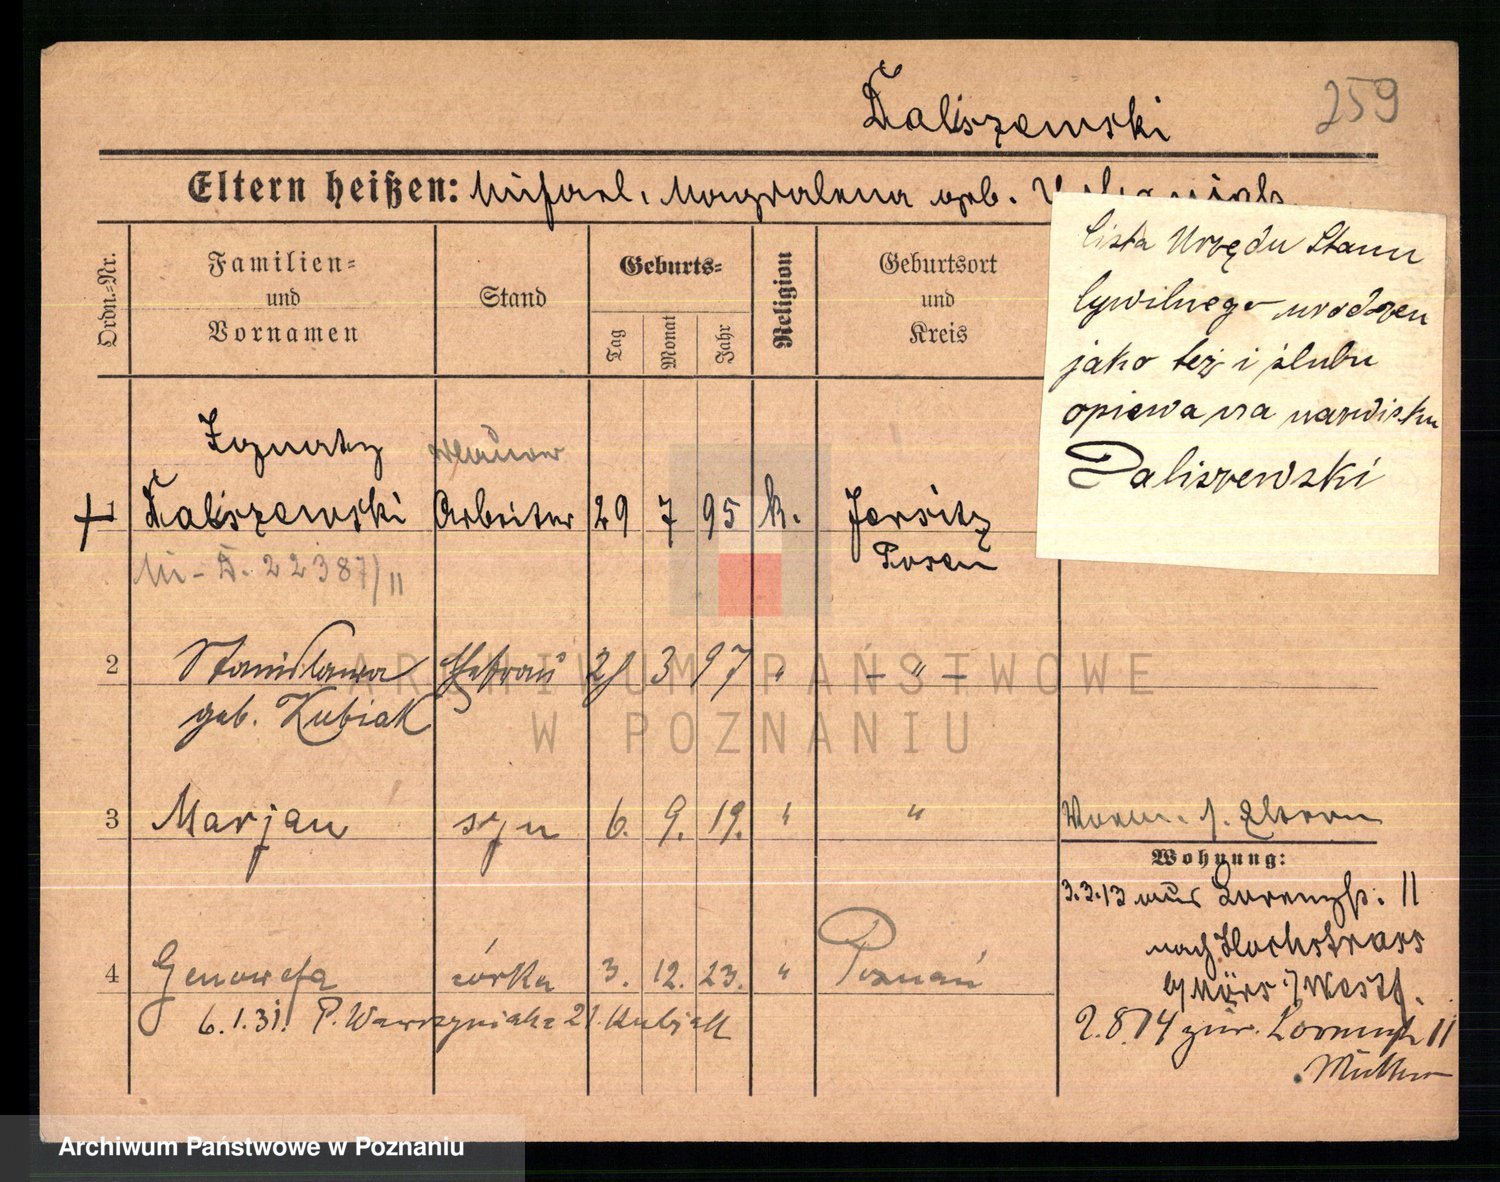 Daliszewski 259
Eltern heißen: Michael, Magdalena geb.
Ordn.-Nr.
Familien-
und
Vornamen
Stand
Geburts-
Tag
Monat
Jahr
Religion
Geburtsort
und
Kreis
Lista Urzędu Stanu
Cywilnego urodzen
jako też i ślubu
opiewa na nazwisku
Daliszewski
Ignatz
1 Daliszewski Arbeiter 29 7 95 k. Jersitz
Posen
22387/II
2 Stanisława Ehefrau 3 97 " - " -
geb. Kubiak
3 Marjan syn 6. 9. 19. " "
Eltern
Wohnung:
3.3.13 aus Lorenzstr. 11
nach Hochstrass
b/Mörs i/Westf.
4 Genowefa córka 3. 12. 23. " Poznań
6.1.31. P. Wawrzyniaka 21. Kubiak
2.8.14 zur. Lorenzstr 11
Mutter
ARCHIWUM PAŃSTWOWE
W POZNANIU
Archiwum Państwowe w Poznaniu